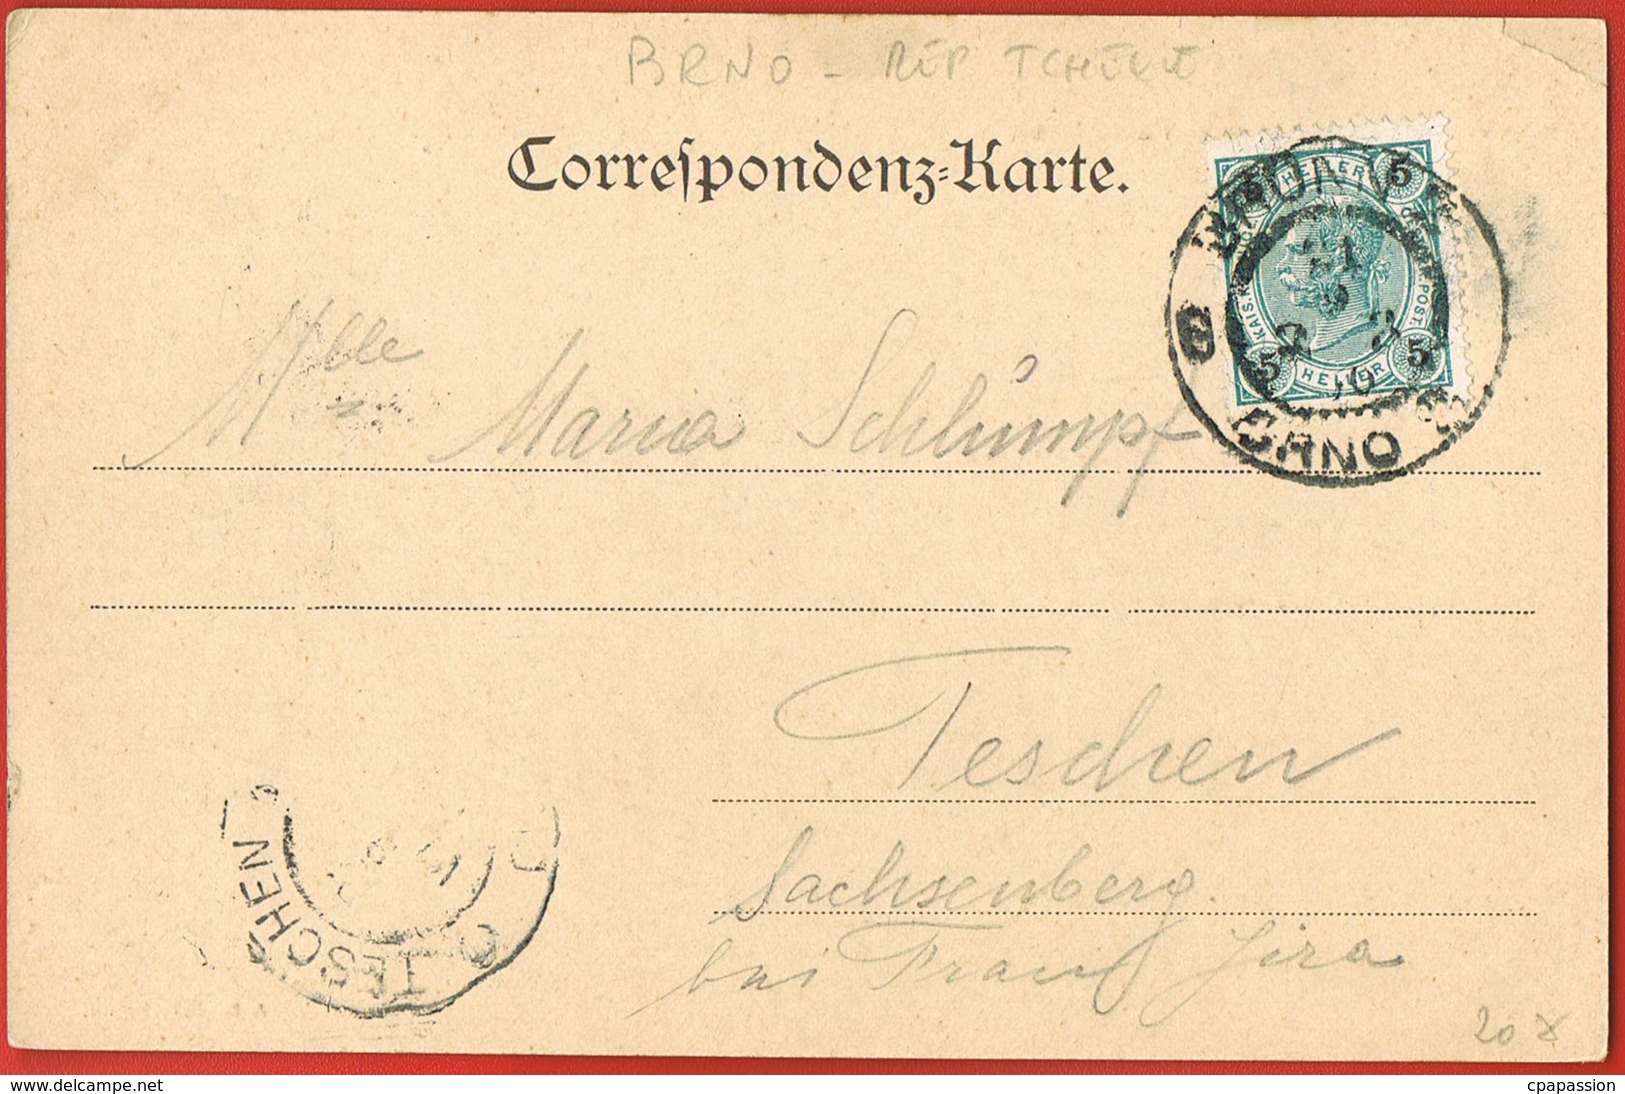 BRNO - RÉP TCHÈQUE
Correſpondenz-Karte.
5 HELLER 5
KAIS. K. OEST. POST.
5 HELLER 5
BRÜNN
21
00
BRNO
Mlle Maria Schlumpf
Teschen
Sachsenberg.
bei Frau Jira
TESCHEN
TESC
20
cpapassion